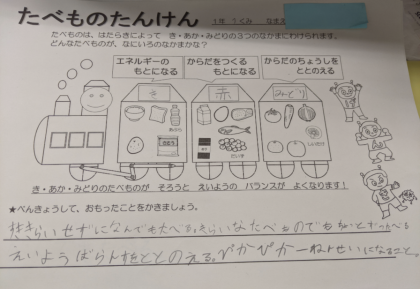 たべものたんけん
1年 1くみ なまえ
たべものは、はたらきによって き・あか・みどりの3つのなかまにわけられます。
どんなたべものが、なにいろのなかまかな?
エネルギーの
もとになる
からだをつくる
もとになる
からだのちょうしを
ととのえる
き
赤
みどり
き・あか・みどりのたべものが そろうと えいようの バランスが よくなります!
★べんきょうして、おもったことをかきましょう。
すききらいせずになんでも大べる。きらいなたべものでもちょっとずつたべる
えいようばらんすをととのえる。ぴかぴか一ねんせいになること。